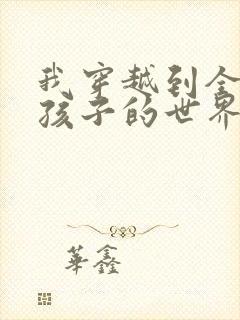 我穿越到全
孩子的世界
華鑫